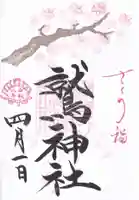 さくら詣
鷲神社
四月一日